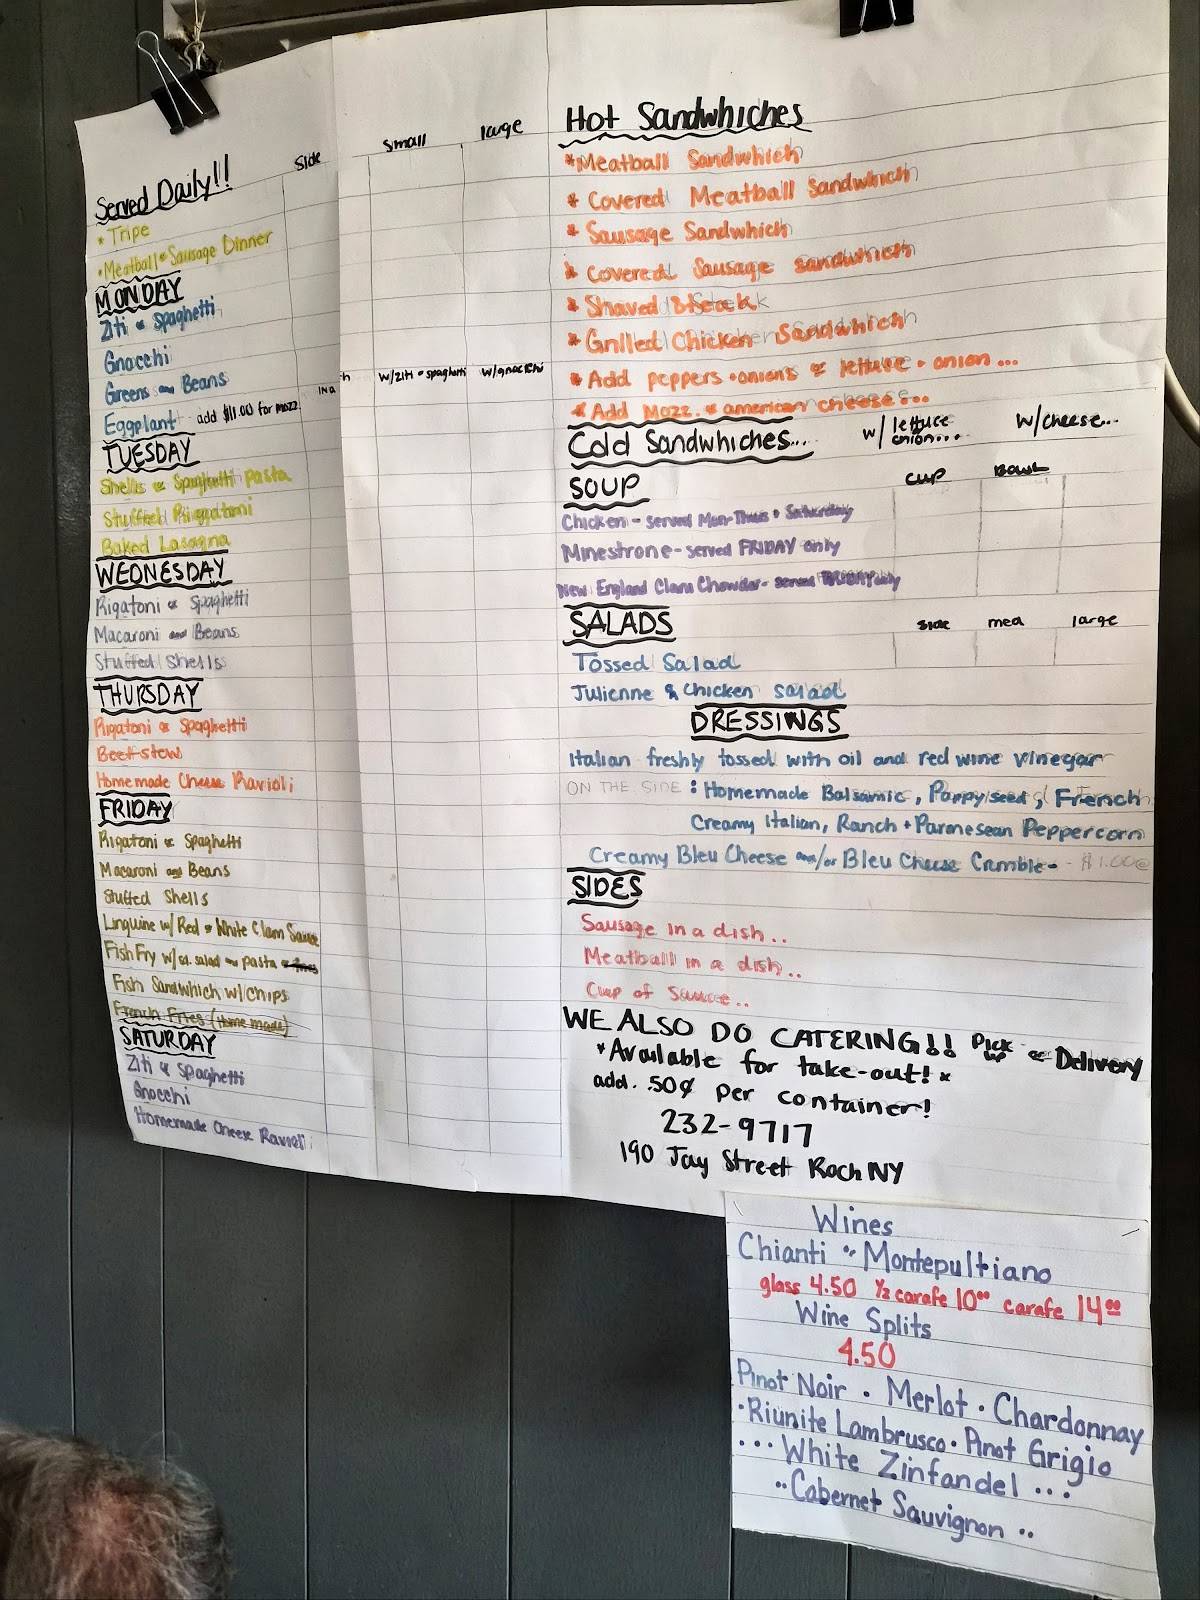 Served Daily!!
side
small
large
* Tripe
• Meatball & Sausage Dinner
MONDAY
Ziti & Spaghetti
Gnocchi
Greens and Beans
w/ziti & spaghetti
w/gnocchi
Eggplant add $11.00 for mozz.
TUESDAY
Shells & Spaghetti pasta
Stuffed Riggatoni
Baked Lasagna
WEDNESDAY
Rigatoni & Spaghetti
Macaroni and Beans
Stuffed Shells
THURSDAY
Rigatoni & Spaghetti
Beef stew
Homemade Cheese Ravioli
FRIDAY
Rigatoni & Spaghetti
Macaroni and Beans
Stuffed Shells
Linguine w/ Red & White Clam Sauce
Fish Fry w/ salad pasta
Fish Sandwhich w/chips
French Fries (Home made)
SATURDAY
Ziti & Spaghetti
Gnocchi
Homemade Cheese Ravioli
Hot Sandwhiches
*Meatball Sandwhich
* Covered Meatball Sandwhich
* Sausage Sandwhich
* Covered Sausage sandwhich
* Shaved Steak
* Grilled Chicken Sandwhich
* Add peppers • onions & lettuce • onion ...
* Add Mozz. & american cheese...
Cold Sandwhiches...
w/ lettuce onion....
w/cheese...
SOUP
cup
Bowl
Chicken - served Mon-Thurs & Saturday
Minestrone - served FRIDAY only
New England Clam Chowder - served FRIDAY only
SALADS
side
med
large
Tossed Salad
Julienne & Chicken salad
DRESSINGS
Italian freshly tossed with oil and red wine vinegar
ON THE SIDE : Homemade Balsamic, Poppyseed, French
Creamy Italian, Ranch + Parmesean Peppercorn
Creamy Bleu Cheese and/or Bleu Cheese Crumble - $1.00@
SIDES
Sausage in a dish..
Meatball in a dish..
Cup of Sauce..
WE ALSO DO CATERING!! Pick up & Delivery
*Available for take-out! *
add. .50¢ per container!
232-9717
190 Jay Street Roch NY
Wines
Chianti • Montepultiano
glass 4.50 ½ carafe 10.00 carafe 14.00
Wine Splits
4.50
Pinot Noir • Merlot • Chardonnay
• Riunite Lambrusco • Pinot Grigio
... White Zinfandel ...
.. Cabernet Sauvignon ..